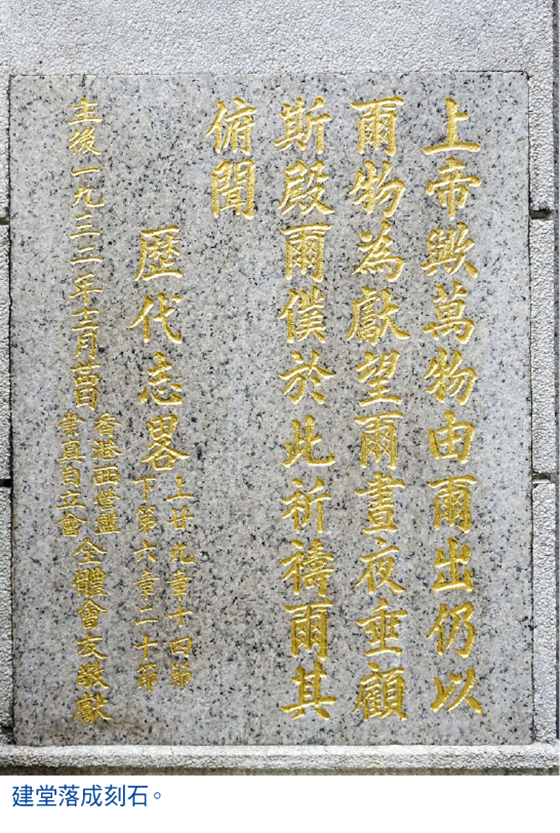 上帝歟萬物由爾出仍以
爾物為獻望爾晝夜垂顧
斯殿爾僕於此祈禱爾其
俯聞
歷代志畧
上廿九章十四節
下第六章二十節
主後一九三二年十二月廿四日
香港西營盤
崇真自立會
全體會友敬獻
建堂落成刻石。